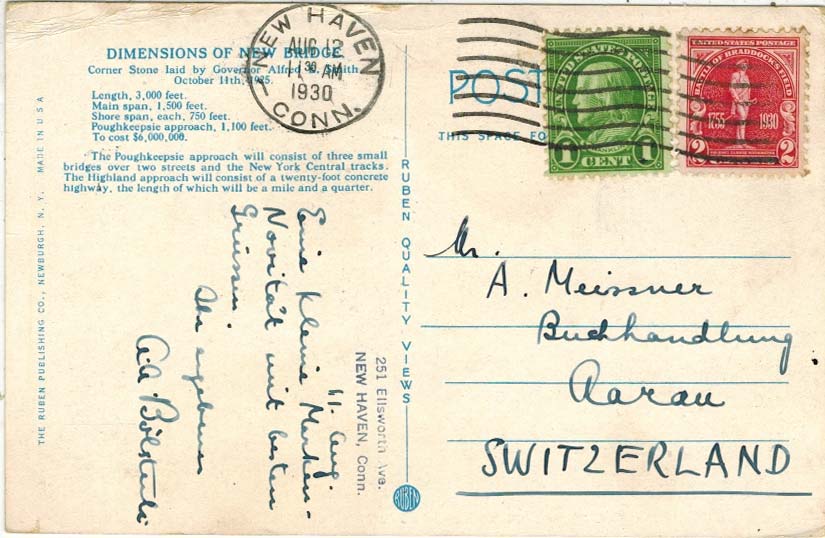 DIMENSIONS OF NEW BRIDGE
Corner Stone laid by Governor Alfred E. Smith
October 11th, 1925.
Length, 3,000 feet.
Main span, 1,500 feet.
Shore span, each, 750 feet.
Poughkeepsie approach, 1,100 feet.
To cost $6,000,000.
The Poughkeepsie approach will consist of three small
bridges over two streets and the New York Central tracks.
The Highland approach will consist of a twenty-foot concrete
highway, the length of which will be a mile and a quarter.
NEW HAVEN
AUG 12
11 30 AM
1930
CONN.
POST
THIS SPACE FO
UNITED STATES POSTAGE
FRANKLIN
1 CENT 1
UNITED STATES POSTAGE
BATTLE OF BRADDOCK'S FIELD
1755 1930
2 2
THE RUBEN PUBLISHING CO., NEWBURGH, N. Y. MADE IN U S A
RUBEN QUALITY VIEWS
RUBEN
251 Ellsworth Ave.
NEW HAVEN, Conn.
11. Aug.
Eine kleine Marken-
Novität mit besten
Grüssen.
Ihr ergebener
Bölsterli
Mr.
A. Meissner
Buchhandlung
Aarau
SWITZERLAND